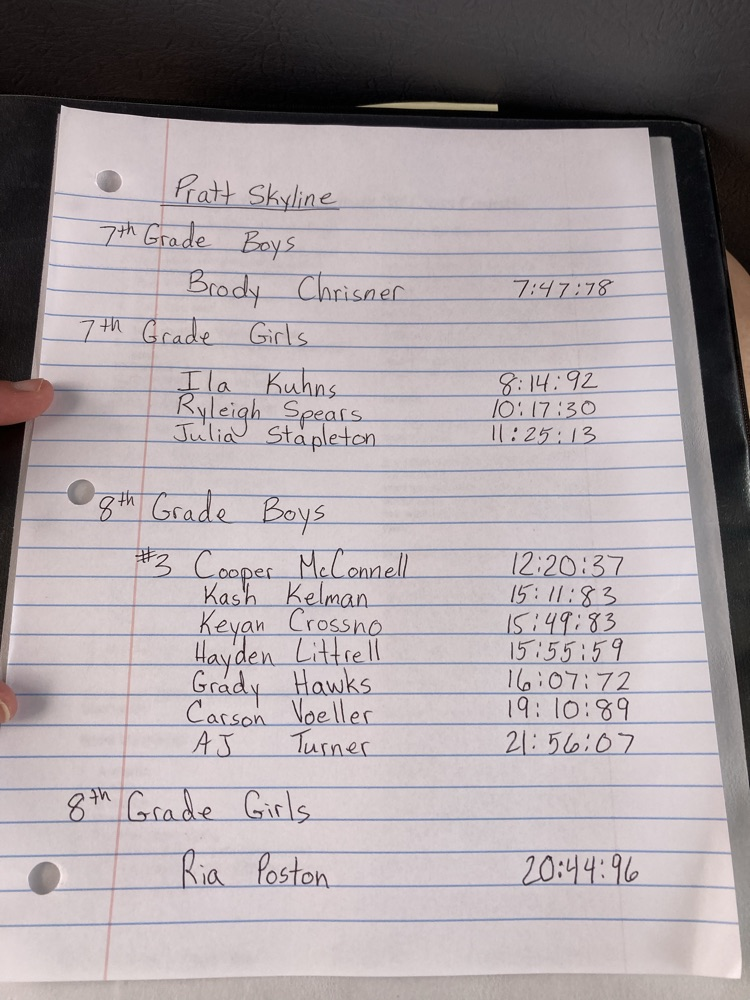 Pratt Skyline
7th Grade Boys
Brody Chrisner 7:47:78
7th Grade Girls
Ila Kuhns 8:14:92
Ryleigh Spears 10:17:30
Julia Stapleton 11:25:13
8th Grade Boys
#3 Cooper McConnell 12:20:37
Kash Kelman 15:11:83
Keyan Crossno 15:49:83
Hayden Littrell 15:55:59
Grady Hawks 16:07:72
Carson Voeller 19:10:89
AJ Turner 21:56:07
8th Grade Girls
Ria Poston 20:44:96